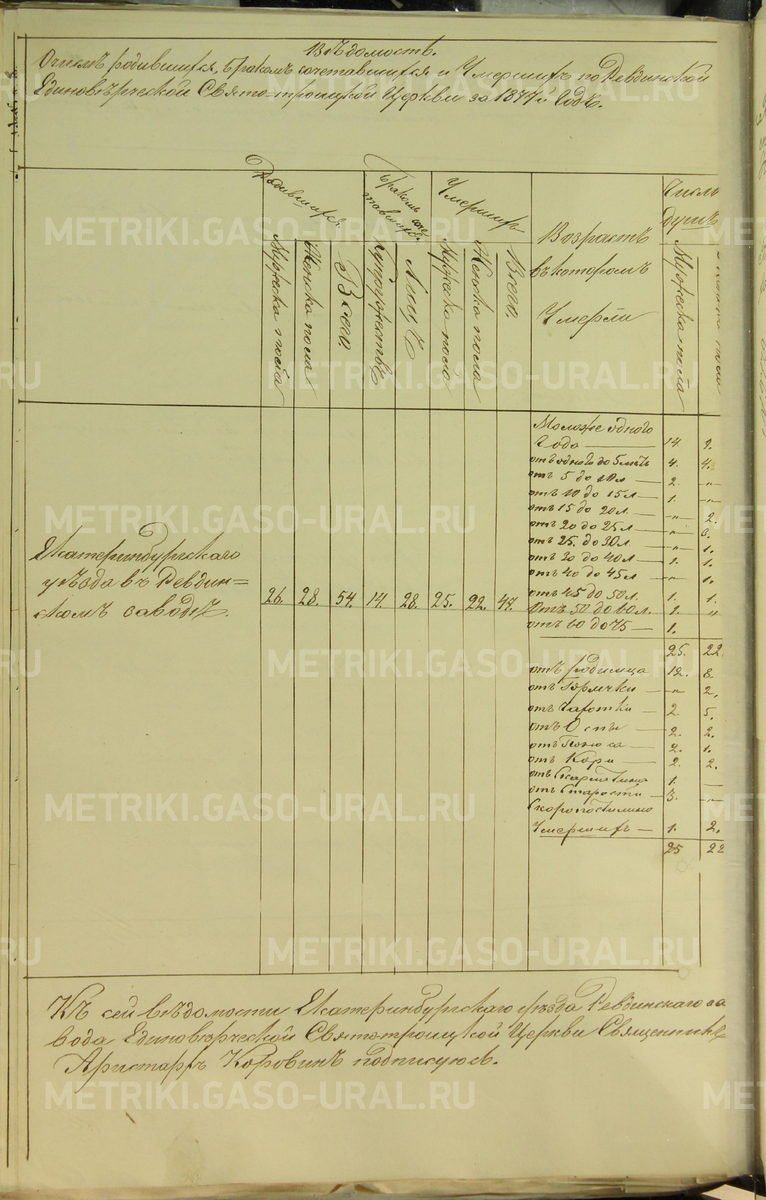 Вѣдомость.
О числѣ родившихся, бракомъ сочетавшихся и Умершихъ по Ревдинской
Единовѣрческой Свято-троицкой Церкви за 1877й Годъ.
Родившихся
Бракомъ соче-
тавшихся
Умершихъ
Возрастъ
въ которомъ
Умерли
Число
душъ
Мужеска пола
Женска пола
Всего.
Супружествъ
Лицъ
Мужеска пола
Женска пола
Всего.
Мужеска пола
Женска пола
Екатеринбургскаго
уѣзда въ Ревдин-
скомъ заводѣ.
26. 28. 54. 14. 28. 25. 22. 47.
Моложе одного
Года — 14. 9.
отъ одного до 5 лѣтъ 4. 4.
отъ 5 до 10 л — 2. „
отъ 10 до 15 л — 1. „
отъ 15 до 20 л — „ 2.
отъ 20 до 25 л — „
отъ 25 до 30 л — „ 1.
отъ 30 до 40 л — 1. 1.
отъ 40 до 45 л — „ 1.
отъ 45 до 50 л. 1. 1.
Отъ 50 до 60 л. 1. „
отъ 60 до 75 — 1.
25. 22.
отъ родимца 12. 8.
отъ Горячки — „ 2.
отъ Чахотки — 2 5.
отъ Оспы — 2. 2.
отъ Поноса — 2. 1.
отъ Кори — 2. 2.
отъ Скарлатина 1. —
отъ Старости — 3. „
Скоропостижно
Умершихъ — 1. 2.
25 22
Къ сей вѣдомости Екатеринбургскаго уѣзда Ревдинскаго за
вода Единовѣрческой Святотроицкой Церкви Священникъ
Аристархъ Коровинъ подписуюсь.
METRIKI.GASO-URAL.RU